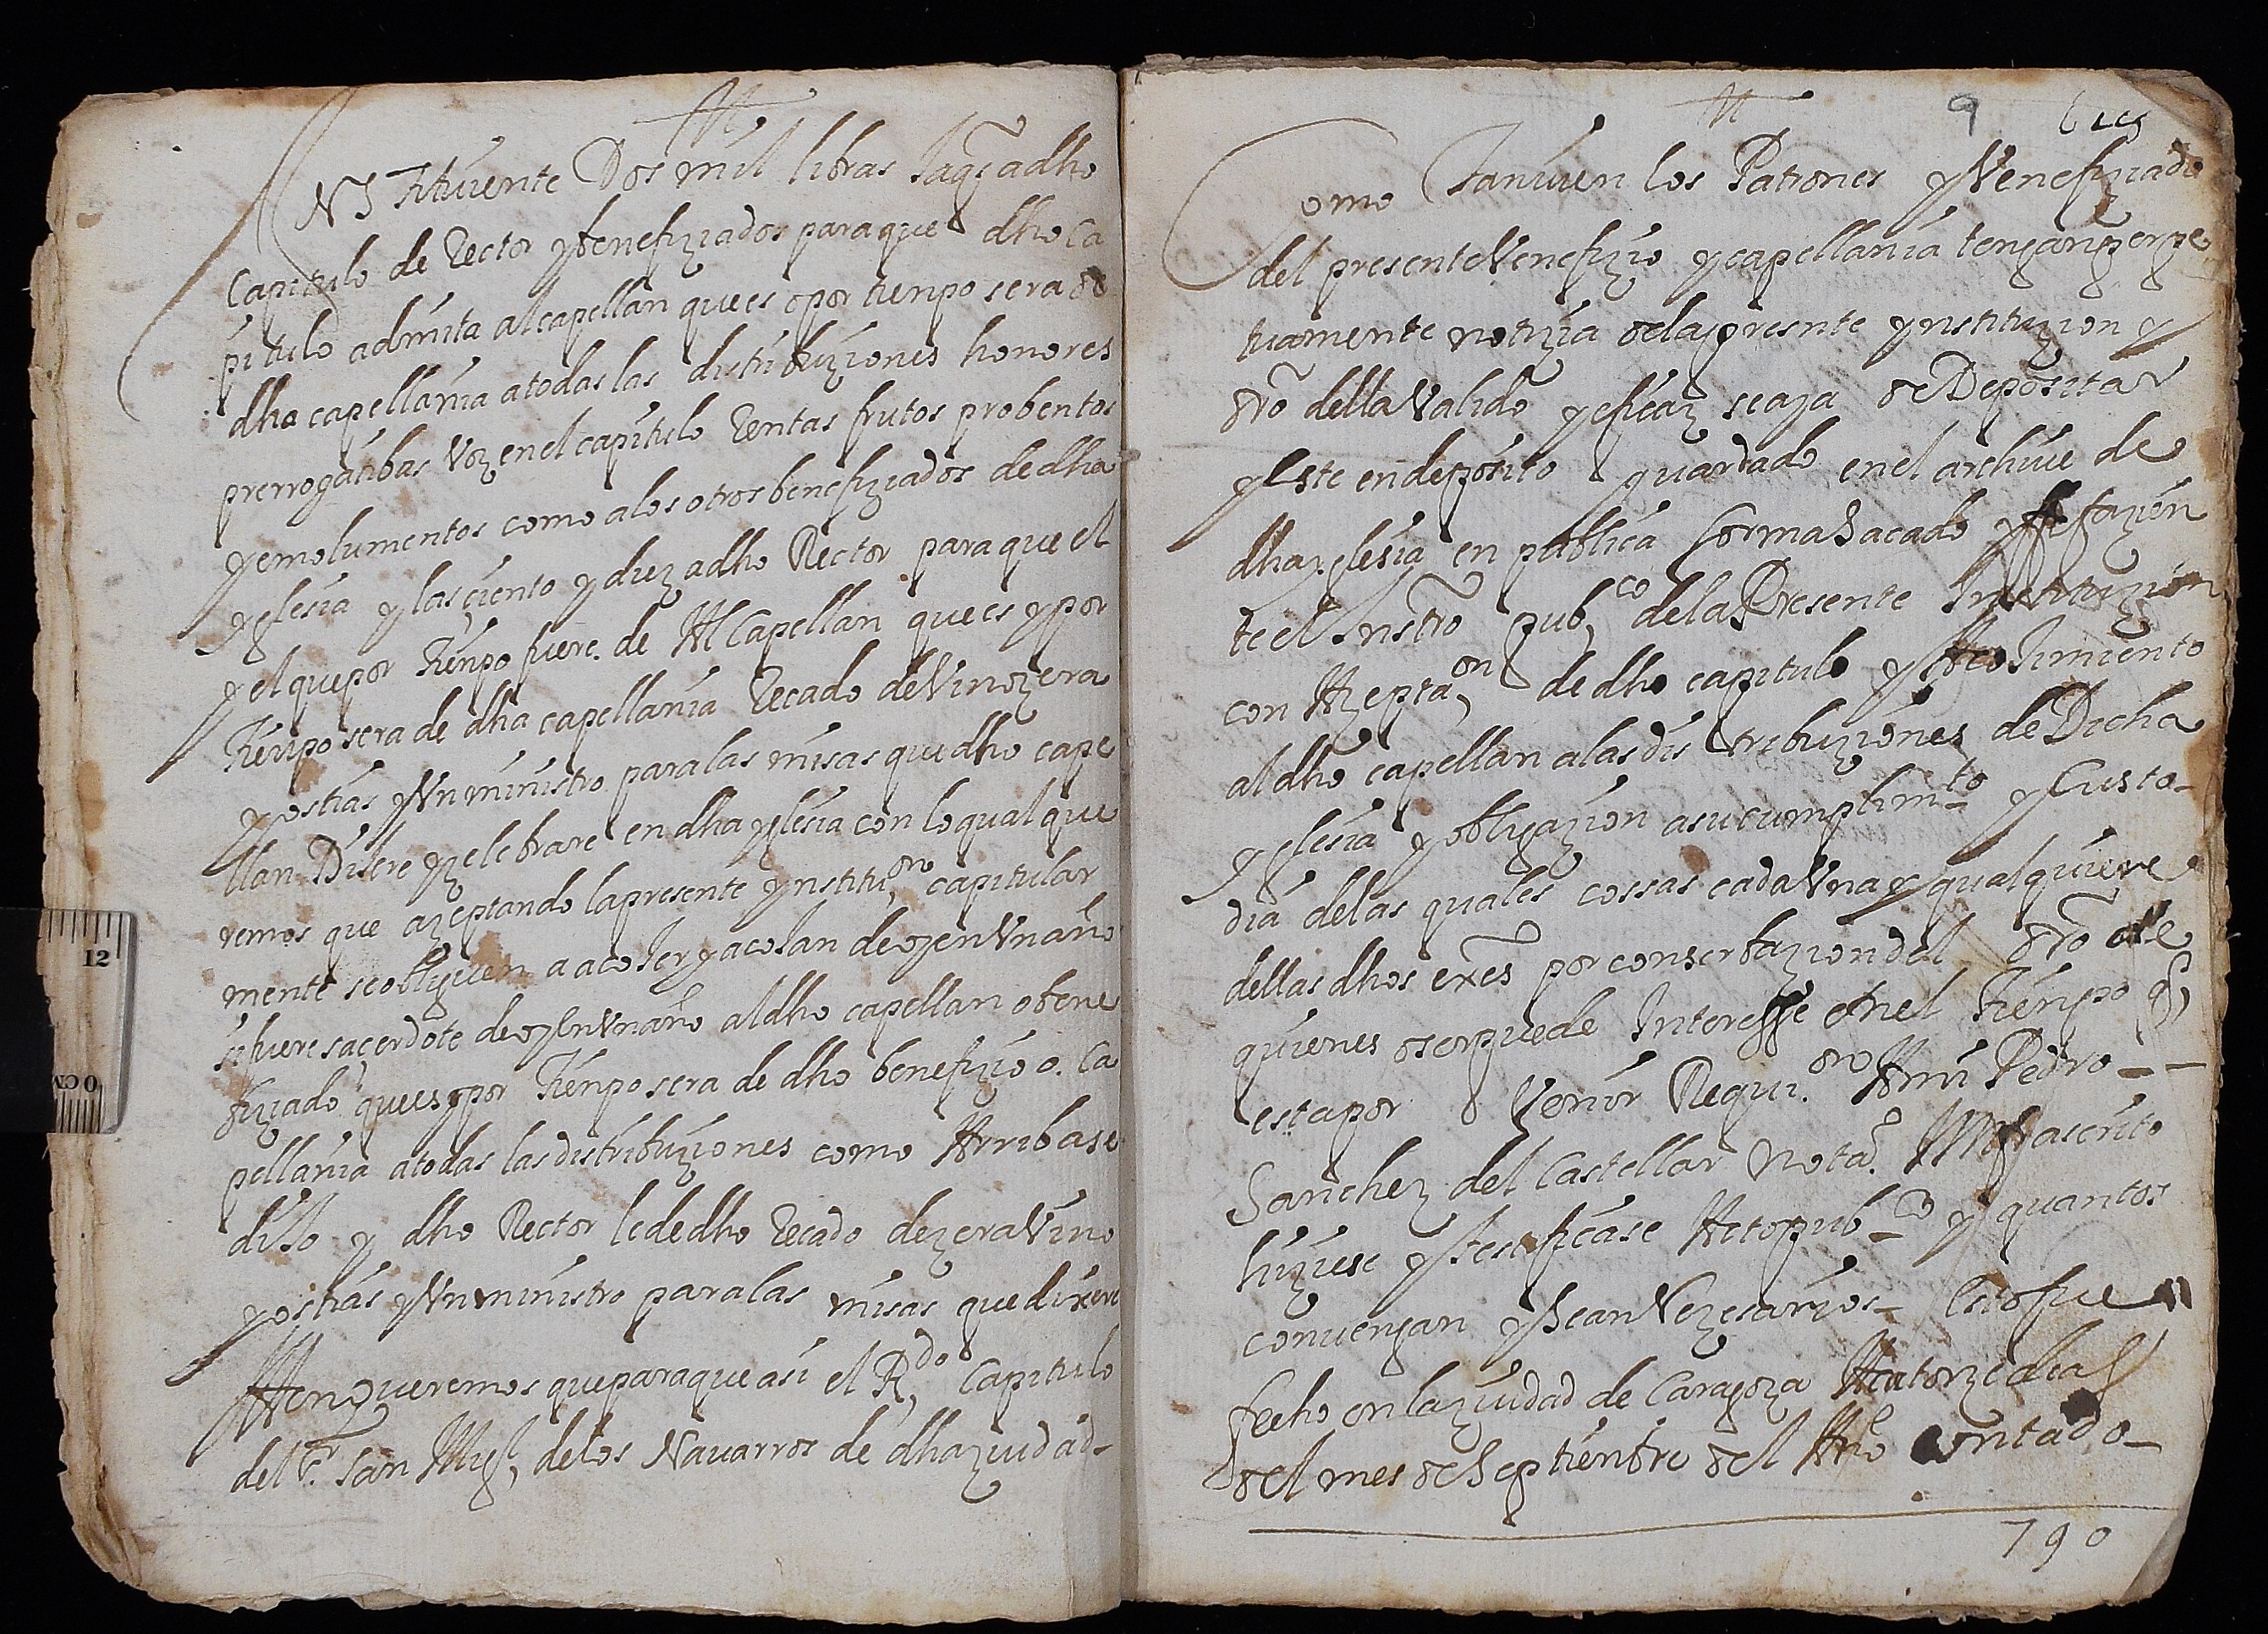 NSTituiente Dos mil libras Jaqs adho
Capitulo de Rector y benefiziados paraque dho Ca
pitulo admita al capellan que es o por tienpo sera de
dha capellania atodas las distribuziones honores
prerrogatibas Voz en el capitulo Rentas frutos probentos
y emolumentos como alos otros benefiziados de dha
yglesia y las çiento y diez adho Rector para que el
y el que por tienpo fuere de Al Capellan que es y por
tienpo sera de dha capellania Recado de Vino zera
y ostias y Vn ministro para las misas que dho cape
llan Disere y zelebrare en dha yglesia con lo qual que
remos que azeptando la presente ynstituon capitular
mente se obliguen a acoJer y acoJan de oy en Vn año
si fuere saçerdote de oy en Vn año al dho capellan o bene
fiziado que es y por tienpo sera de dho benefizio o Ca
pellania atodas las distribuziones como Arriba se
diJo y dho Rector le de dho Recado de zera Vino
y ostias y Vn ministro para las misas que dixere
Iten queremos que para que asi el Rdo Capitulo
del Sr San Migl de los Nauarros de dha ziudad
9
Como Tanuien los Patrones y Venefiziado
del presente Venefizio y capellania tengan perpe
tuamente notizia de la presente ynstituzion y
dro della Valido y eficaz se aya de Depositar
y Este en deposito guardado en el archiue de
dha yglesia en publica forma Sacado y fe fazien
te el Instro pubco de la Presente Instituzion
con Azeptaon de dho capitulo y AcoJimiento
al dho capellan a las distribuziones de Dicha
yglesia y obligazion a su cumplimto y Custo-
dia de las quales cossas cada Vna y qualquiere
dellas dhos exes por conserbazion del dro de
quienes es o ser puede Interesse en el tienpo
esta por Venir Requion A mi Pedro
Sanchez del Castellar Notao Infrascrito
hiziese y testificase Acto pubco y quantos
conuengan y Sean Nezesarios Esto fue
fecho en la ziudad de Caragoza A catorze dias
del mes de Septienbre del Año contado
790